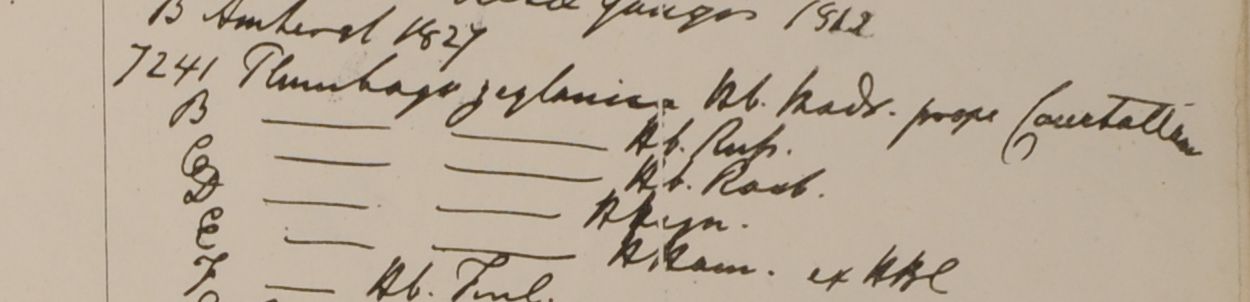 Ganges 1812
B Amherst 1827
7241 Plumbago zeylanica Hb. Madr. prope Courtallam
B — — Hb. Russ.
C — — Hb. Roxb.
D — — H. Heyn.
E — — H. Ham. ex HBC
F — Hb. Finl.